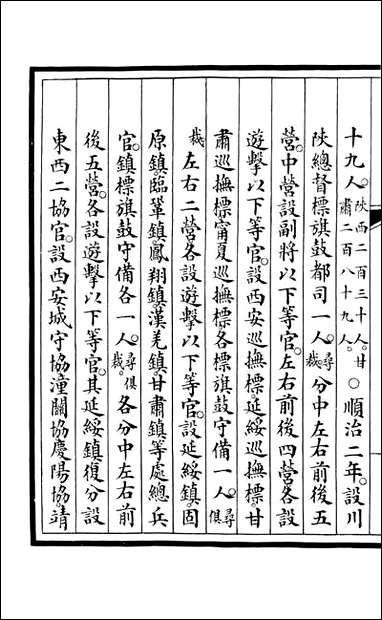 十九人。陝西二百三十人。甘肅二百八十九人。○順治二年。設川
陝總督標旗鼓都司一人。尋裁。分中左右前後五
營。中營設副將以下等官。左右前後四營。各設
遊擊以下等官。設西安巡撫標。延綏巡撫標。甘
肅巡撫標。甯夏巡撫標。各標旗鼓守備一人。尋俱
裁。左右二營。各設遊擊以下等官。設延綏鎮。固
原鎮。臨鞏鎮。鳳翔鎮。漢羌鎮。甘肅鎮等處總兵
官。鎮標旗鼓守備各一人。尋俱裁。各分中左右前
後五營。各設遊擊以下等官。其延綏鎮。復分設
東西二協官。設西安城守協。潼關協。慶陽協。靖